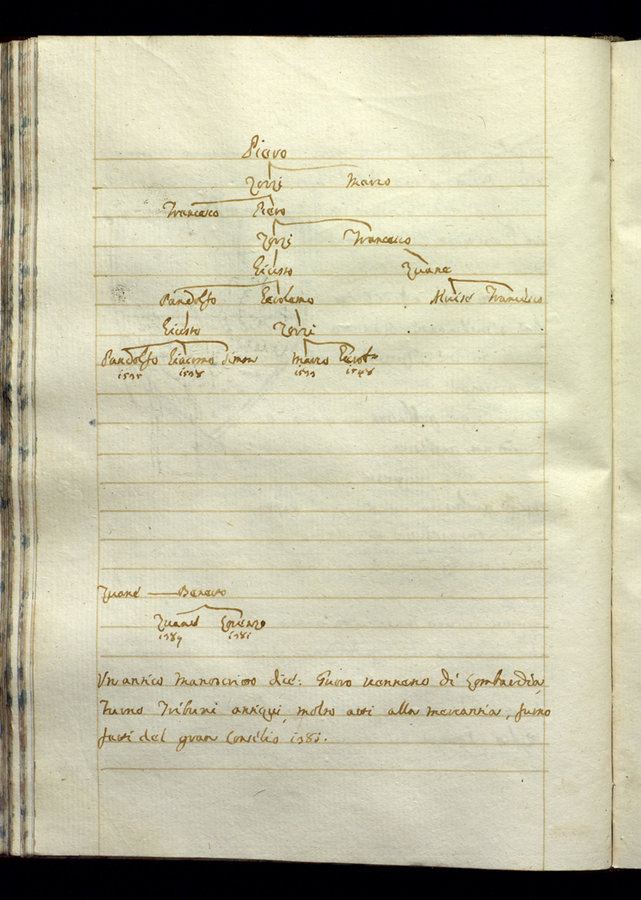 Piero
Zorzi Marco
Francesco Piero
Zorzi Francesco
Giusto Zuane
Pandolfo Girolamo Alvise Francesco
Giusto Zorzi
Pandolfo Giacomo Simon Marco Girol.º
1535 1538 1548
Zuane Benetto
Zuane Lorenzo
1381
Un antico manoscritto dice: Questi vennero di Lombardia,
furno Tribuni antiqui, molto atti alla mercantia, furno
fatti del gran Consilio 1381.